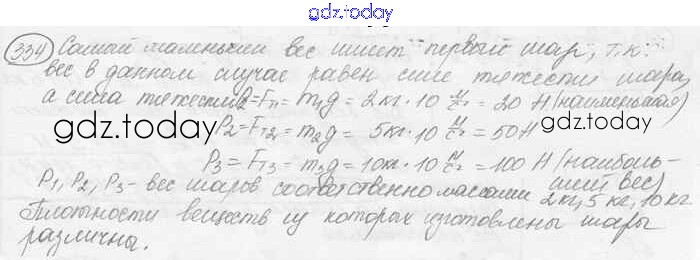 gdz.today
334 Самый маленький вес имеет первый шар, т.к.
вес в данном случае равен силе тяжести шара,
а сила тяжести P₁=Fт₁=m₁g=2кг·10 м/с²=20 Н (наименьшая)
gdz.today
P₂=Fт₂=m₂g=5кг·10 м/с²=50Н
gdz.today
P₃=Fт₃=m₃g=10кг·10 м/с²=100 Н (наиболь-
ший вес)
P₁, P₂, P₃- вес шаров соответственно массами 2кг, 5 кг, 10 кг
Плотности веществ из которых изготовлены шары
различны.
gdz.today